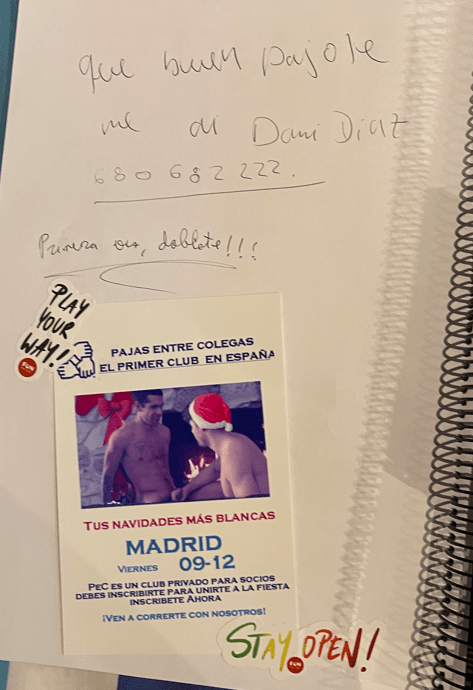 que buen pajote
me di Dani Díaz
680 682 222.
Primera vez, doblete!!!
PLAY
YOUR
WAY!
FUN
PAJAS ENTRE COLEGAS
EL PRIMER CLUB EN ESPAÑA
TUS NAVIDADES MÁS BLANCAS
MADRID
VIERNES 09-12
PEC ES UN CLUB PRIVADO PARA SOCIOS
DEBES INSCRIBIRTE PARA UNIRTE A LA FIESTA
INSCRIBETE AHORA
¡VEN A CORRERTE CON NOSOTROS!
STAY OPEN!
FUN